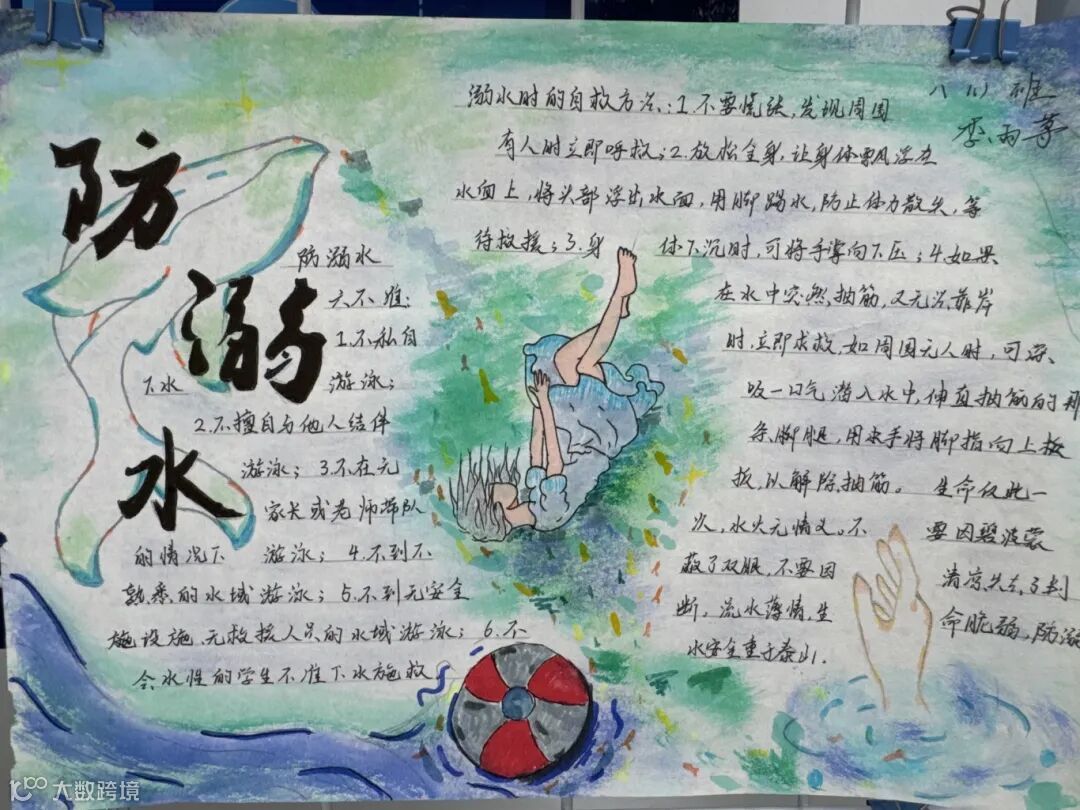 防溺水
八(1)班
李雨萼
溺水时的自救方法:1.不要慌张,发现周围
有人时立即呼救;2.放松全身,让身体飘浮在
水面上,将头部浮出水面,用脚踢水,防止体力散失,等
待救援;3.身体下沉时,可将手掌向下压;4.如果
在水中突然抽筋,又无法靠岸
时,立即求救,如周围无人时,可深、
吸一口气潜入水中,伸直抽筋的那
条脚腿,用手将脚指向上板
扳,以解除抽筋。生命仅此一
次,水火无情义。不要因碧波蒙
蔽了双眼,不要因清凉失去了判
断,流水薄情,生命脆弱,防溺
水安全重于泰山.
防溺水
六不准:
1.不私自
下水游泳;
2.不擅自与他人结伴
游泳;3.不在无
家长或老师带队
的情况下游泳;4.不到不
熟悉的水域游泳;5.不到无安全
施设施、无救援人员的水域游泳;6.不
会水性的学生不准下水施救
大数跨境